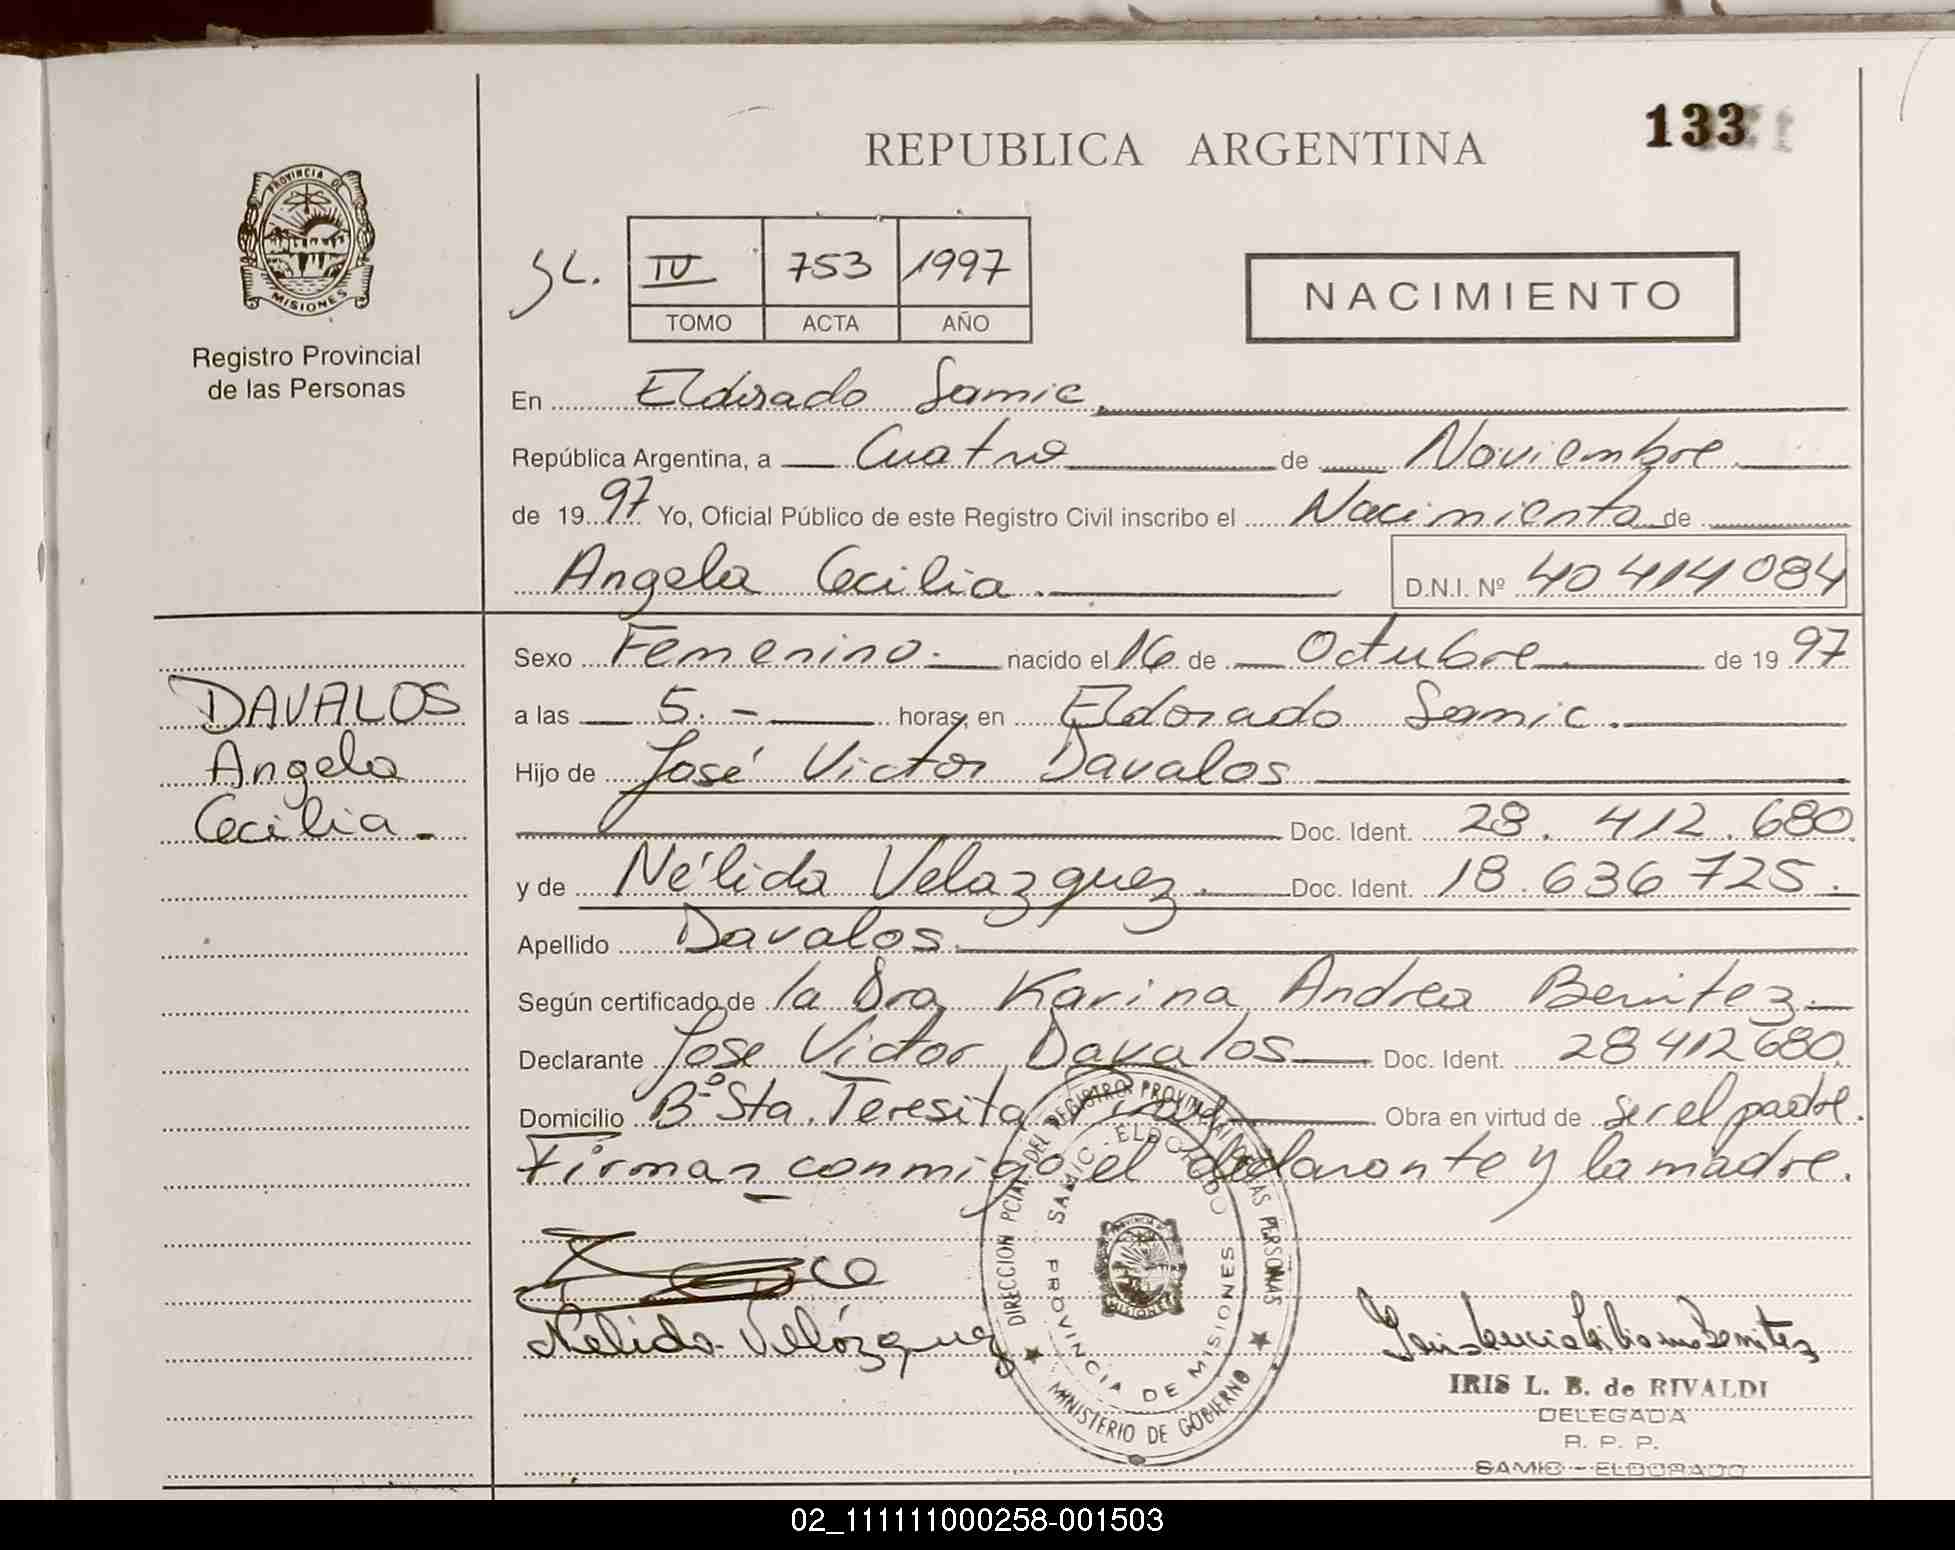 133
REPUBLICA ARGENTINA
PROVINCIA DE
MISIONES
Registro Provincial
de las Personas
SL.
IV 753 1997
TOMO ACTA AÑO
NACIMIENTO
En Eldorado Samic.
República Argentina, a Cuatro de Noviembre
de 1997 Yo, Oficial Público de este Registro Civil inscribo el Nacimiento de
Angela Cecilia. D.N.I. Nº 40414084
Sexo Femenino. nacido el 16 de Octubre de 1997
DAVALOS
Angela
Cecilia.
a las 5.- horas, en Eldorado Samic.
Hijo de José Victor Davalos
Doc. Ident. 28.412.680
y de Nélida Velazquez. Doc. Ident. 18.636725.
Apellido Davalos
Según certificado de la Dra Karina Andrea Benitez.
Declarante Jose Victor Davalos Doc. Ident. 28412680.
Domicilio Bº Sta. Teresita Obra en virtud de ser el padre.
Firman conmigo el declarante y la madre.
Nelida Velázquez
DIRECCION PCIAL. DEL REGISTRO PROVINCIAL DE LAS PERSONAS
MINISTERIO DE GOBIERNO
SAMIC - ELDORADO
PROVINCIA DE MISIONES
IRIS L. B. de RIVALDI
DELEGADA
R. P. P.
SAMIC - ELDORADO
02_111111000258-001503